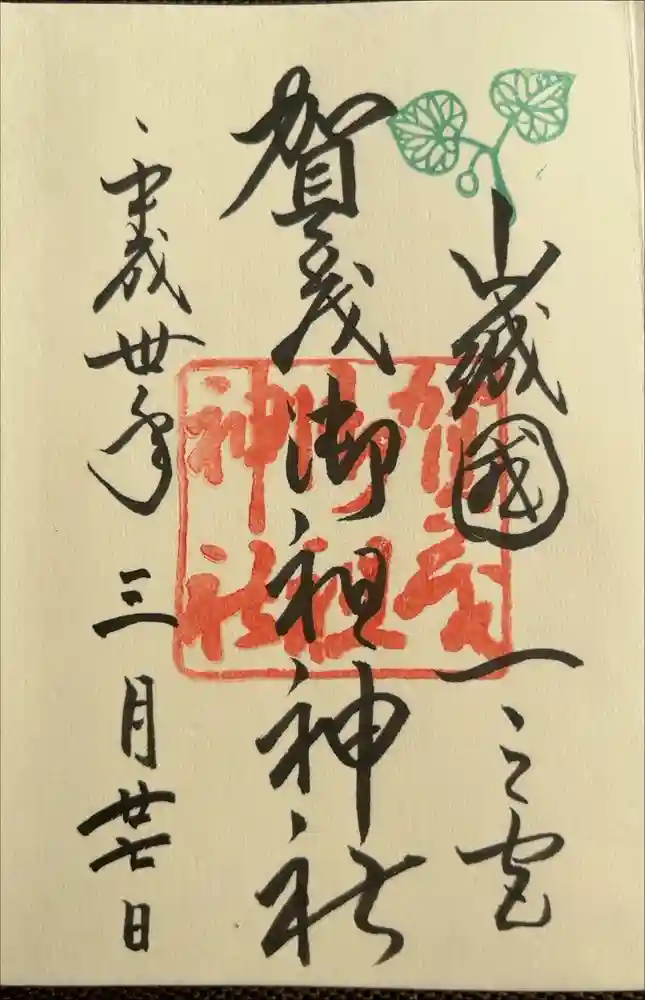 山城國一之宮
賀茂御祖神社
平成卅年三月廿七日
賀茂
御祖
神社